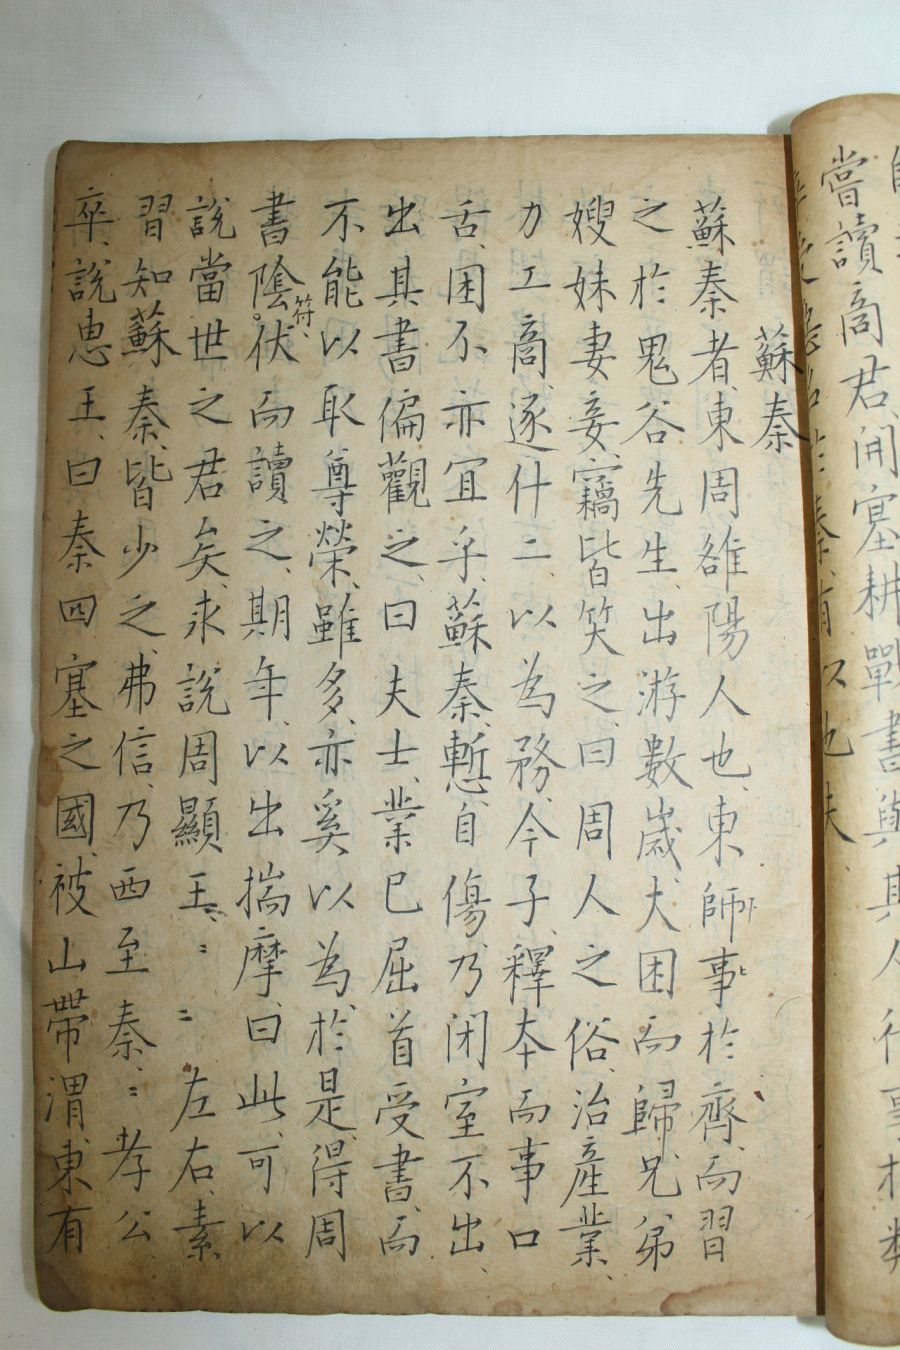 嘗讀商君、開塞耕戰書、與其人行事相類
蘇秦
蘇秦者、東周雒陽人也、東師事於齊、而習
之於鬼谷先生、出游數歲、大困而歸、兄弟
嫂妹妻妾、竊皆笑之、曰周人之俗、治產業、
力工商、逐什二、以為務、今子釋本而事口
舌、困不亦宜乎、蘇秦、慙自傷、乃閉室不出、
出其書徧觀之、曰夫士、業已屈首受書、而
不能以取尊榮、雖多、亦奚以為、於是、得周
書陰符、伏而讀之、期年、以出揣摩、曰此可以
說當世之君矣、求說周顯王、〻〻左右、素
習知蘇秦、皆少之、弗信、乃西至秦、〻孝公
卒、說惠王、曰秦四塞之國、被山帶渭、東有